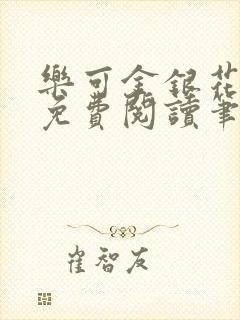 樂可金銀花
免費閱讀筆
崔智友